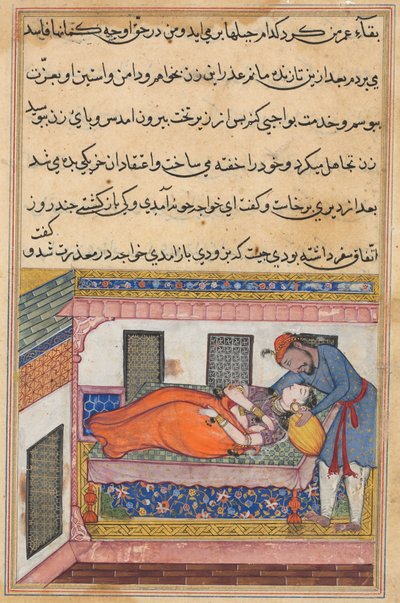 بقاء عمر من کرد کدام حیلها بر می اید و من در حق او چه کمانها فاسد
می بردم بعد ازین تا زنده مانم عذر این زن بخواهم و دامن و استین او بعزت
ببوسم و خدمت بواجبی کنم پس از زیر تخت بیرون امد سر و پای زن بوسید
زن تجاهل میکرد و خود را خفته می ساخت و اعتقاد ان خر یکی ده می شد
بعد از دیری برخاست و کفت ای خواجه خوش آمدی و کی باز کشتی چند روز
اتفاق سفر داشته بودی چیست که بزودی باز امدی خواجه در معذرت شد و کفت